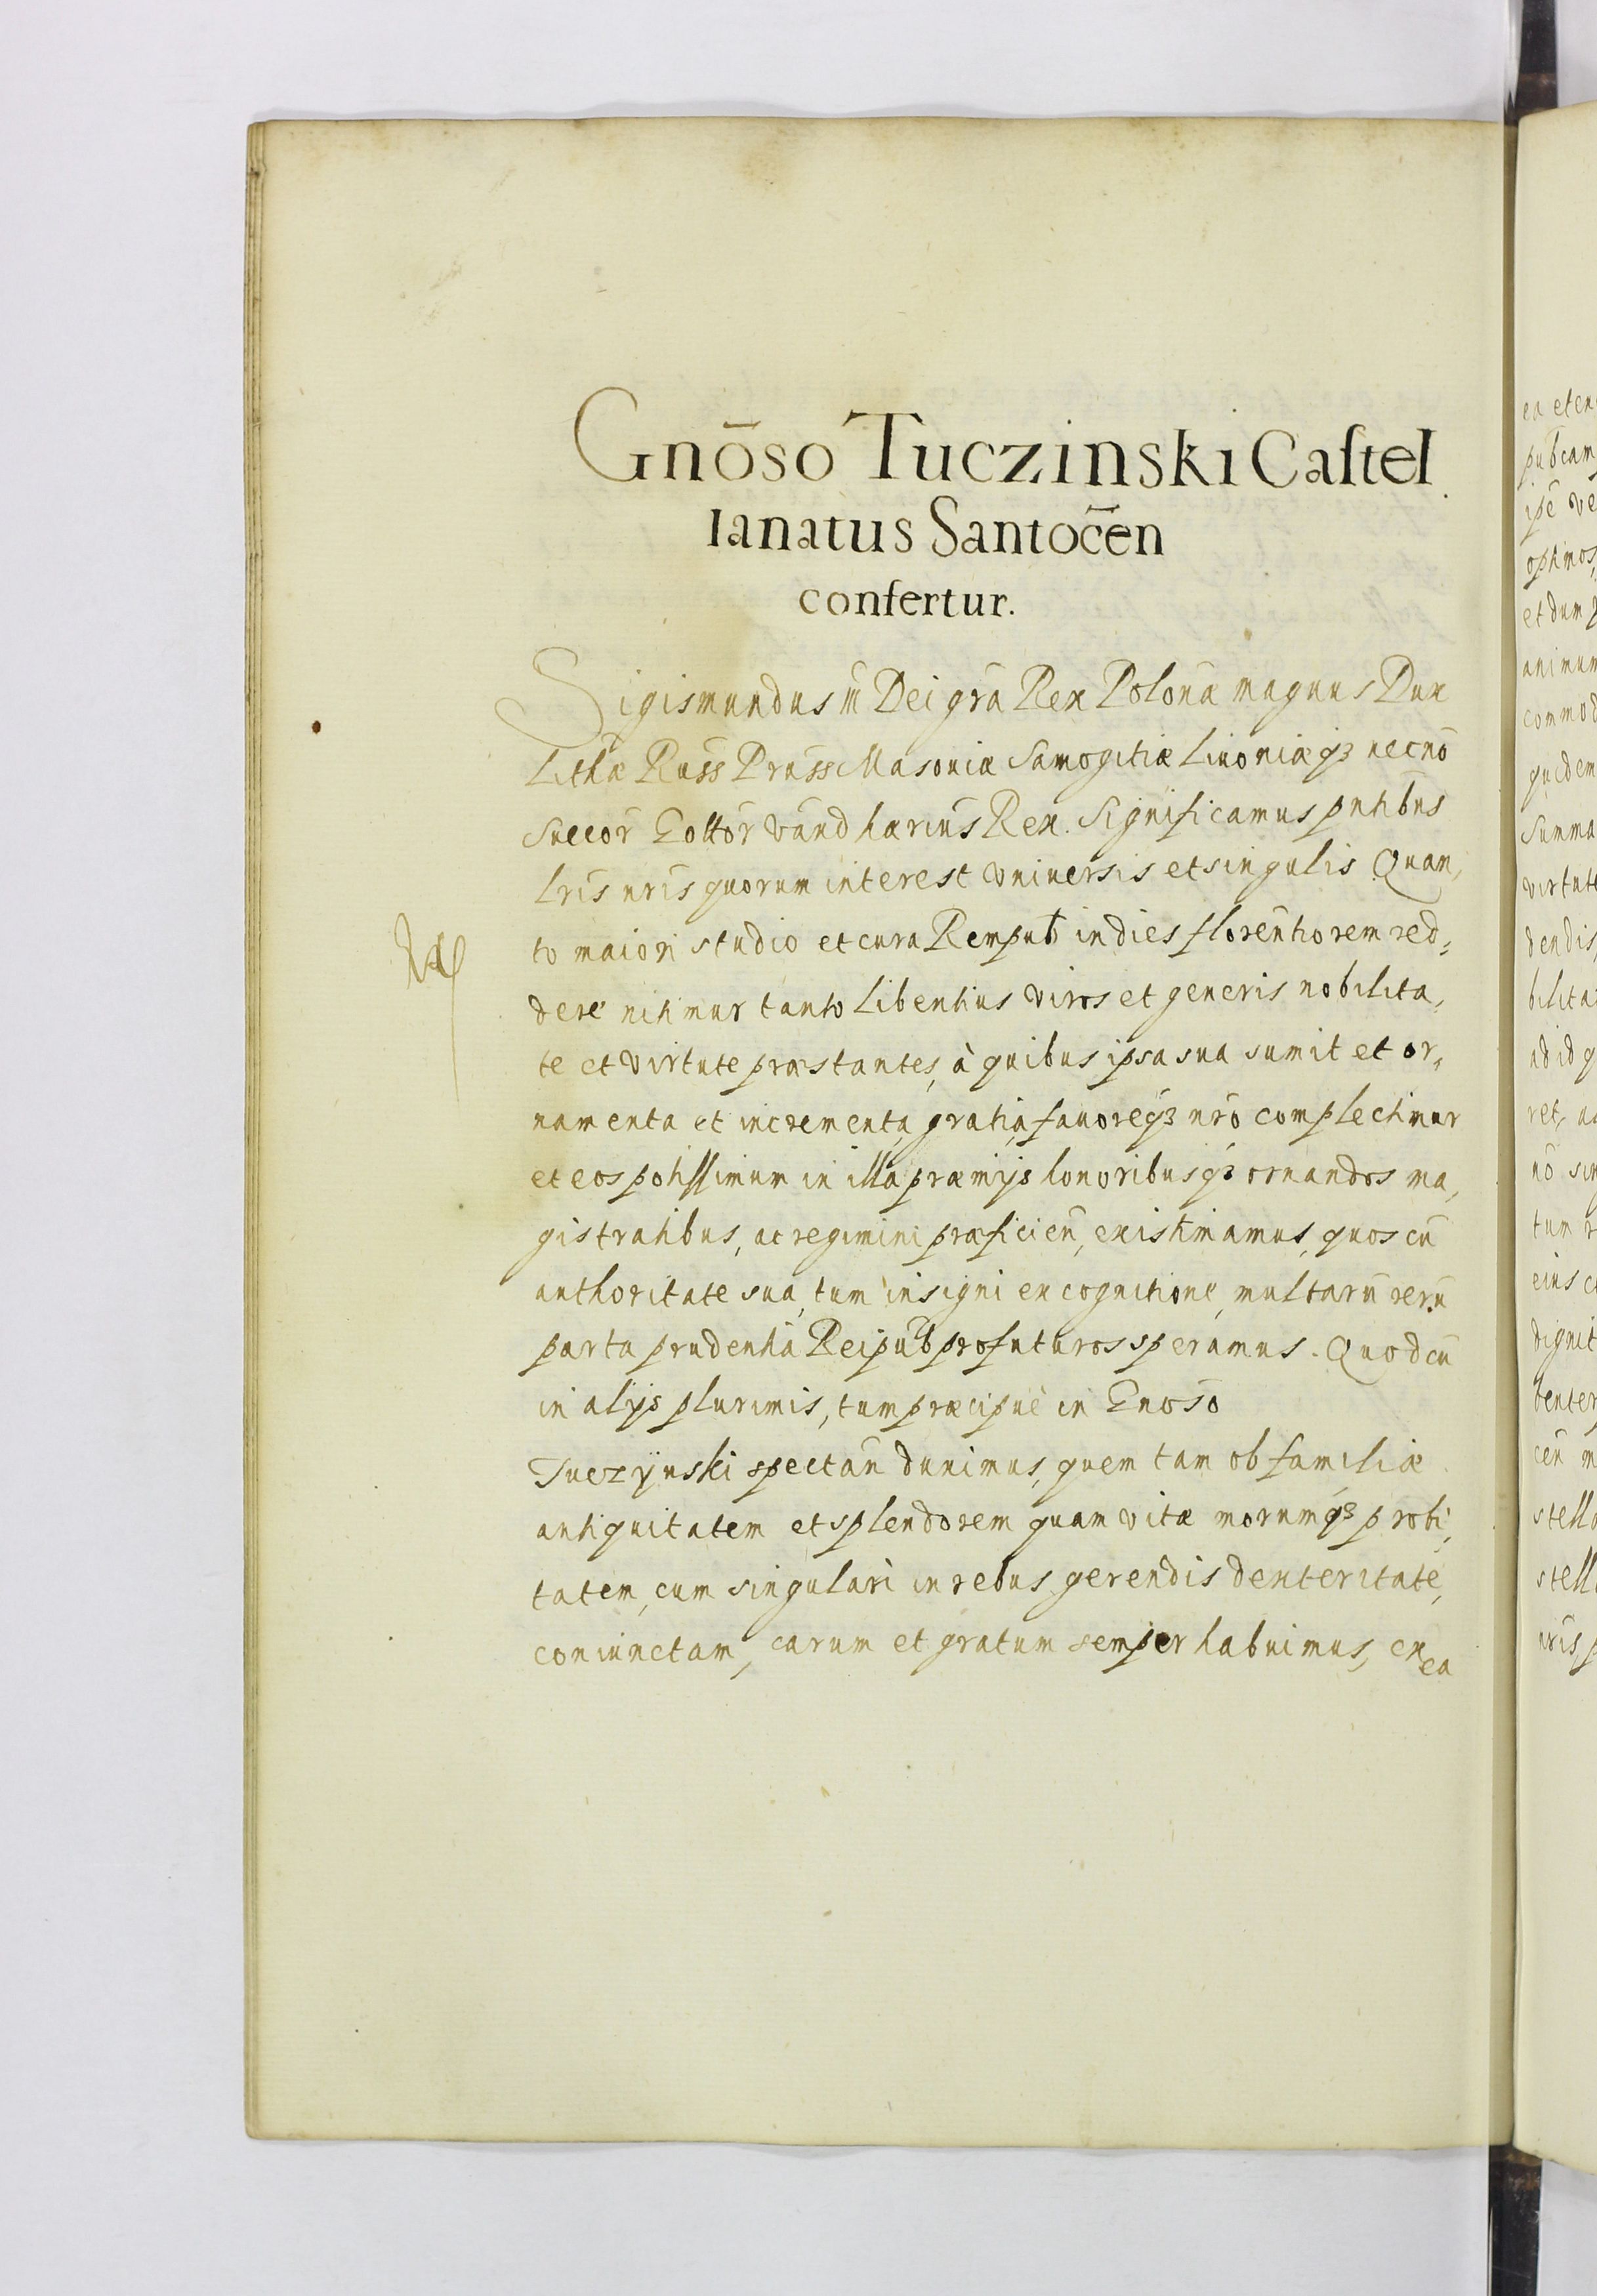 Gnōso Tuczinski Castel
lanatus Santoc̄en
confertur.
Sigismundus iii Dei grā Rex Polonā magnus Dux
Lithæ Russ̄ Pruss̄ Masouiæ Samogitiæ Liuoniæq3 necnō
Suecor̄ Gottor̄ Vand hærius̄ Rex. Significamus pntibus
Lris nris quorum interest vniuersis et singulis Quan,
to maiori studio et cura Rempub indies florentiorem red,
dere nitimur tanto libentius viros et generis nobilita,
te et virtute præstantes, à quibus ipsa sua sumit et or,
namenta et incrementa, gratia, fauoreq3 nrō complectimur
et eos potissimum in illa præmijs honoribusq3 ornandos ma,
gistratibus, ac regimini præficien̄, existimamus, quos cū
authoritate sua, tum insigni ex cognitione, multarū rerū
parta prudentia Reipub̄ profuturos speramus. Quod cū
in alijs plurimis, tum præcipuè in Gnōso
Tuczÿnski spectan̄ duximus, quem tam ob familiæ
antiquitatem et splendorem quam vitæ morumq3 probi,
tatem, cum singulari in rebus gerendis dexteritate,
coniunctam, carum et gratum semper habuimus, ex
ea